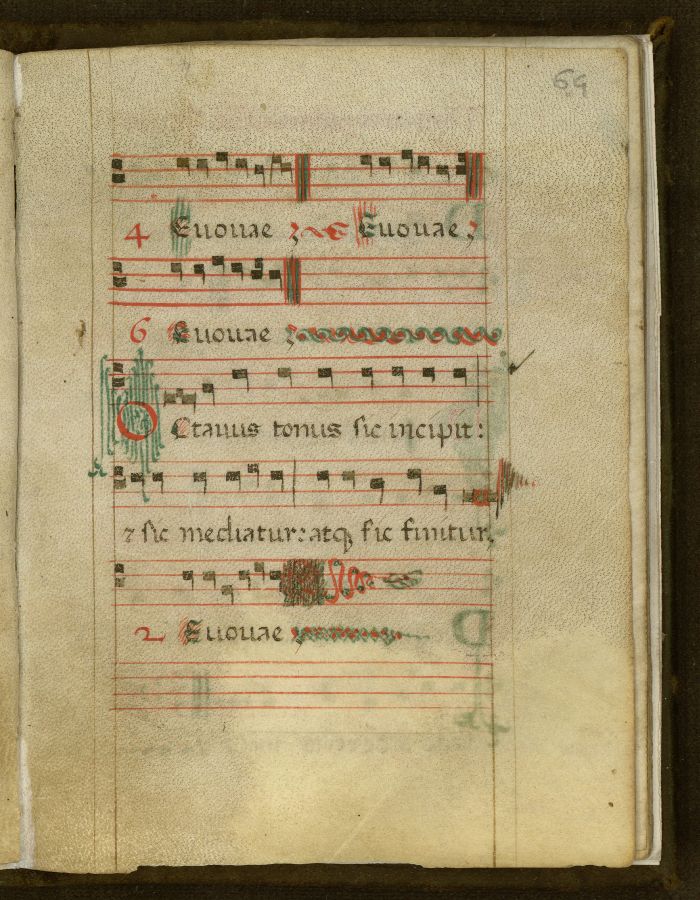 69
4 Euouae Euouae
6 Euouae
Octauus tonus sic incipit:
⁊ sic mediatur: atqꝫ sic finitur,
2 Euouae